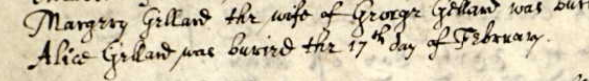 Margery Gellard the wife of George Gellard was buri
Alice Gellard was buried the 17th day of February.